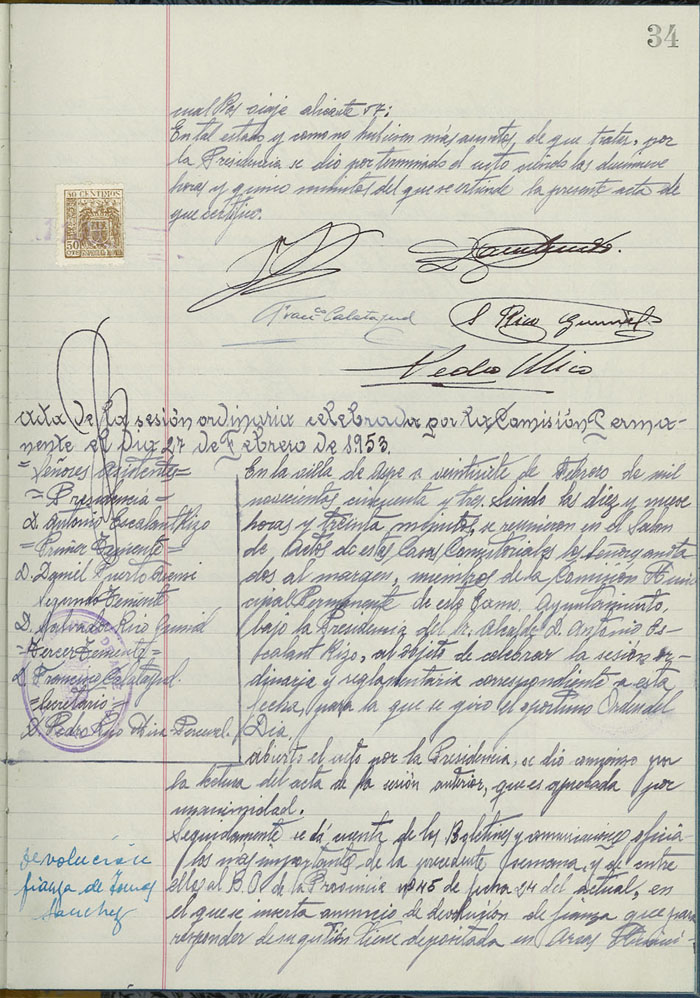 34
cual Pos viaje alicante 57;
En tal estado y como no hubiesen más asuntos, de que tratar, por
la Presidencia se dio por terminado el acto siendo las diecinueve
horas y quince minutos del que se extiende la presente acta de
que certifico.
50 CENTIMOS
50
Franco Calatayud
S Rico Gumiel
Pedro Mico
Acta de la sesión ordinaria celebrada por la Comisión Perma-
nente el dia 27 de Febrero de 1953.
=Señores asistentes=
=Presidencia=
D. Antonio Escalant Rizo
=Primer Teniente=
D. Daniel Puerto
Segundo Teniente
D. Salvador Rico Gumiel
=Tercer Teniente=
D. Francisco Calatayud.
=Secretario=
D. Pedro Mira Perceval.
En la villa de Aspe a veintisiete de Febrero de mil
novecientos cincuenta y tres. Siendo las diez y nueve
horas y treinta minutos, se reunieron en el Salon
de Actos de estas Casas Consistoriales los señores anota
dos al margen, miembros de la Comisión Muni
cipal Permanente de este Ayuntamiento.
bajo la Presidencia del Sr. Alcalde D. Antonio Es-
calant Rizo, al objeto de celebrar la sesión or-
dinaria y reglamentaria correspondiente a esta
fecha, para la que se giró el oportuno Orden del
Dia.
Abierto el acto por la Presidencia, se dio comienzo por
la lectura del acta de la sesión anterior, que es aprobada por
unanimidad.
Devolución
fianza de Tomas
Sanchez
Seguidamente se dá cuenta de los Boletines y comunicaciones oficia
les más importantes de la precedente semana, y de entre
ellos al B.O de la Provincia nº 45 de fecha 24 del actual, en
el que se inserta anuncio de devolución de fianza que para
responder de su gestión tiene depositada en Arcas Munici-